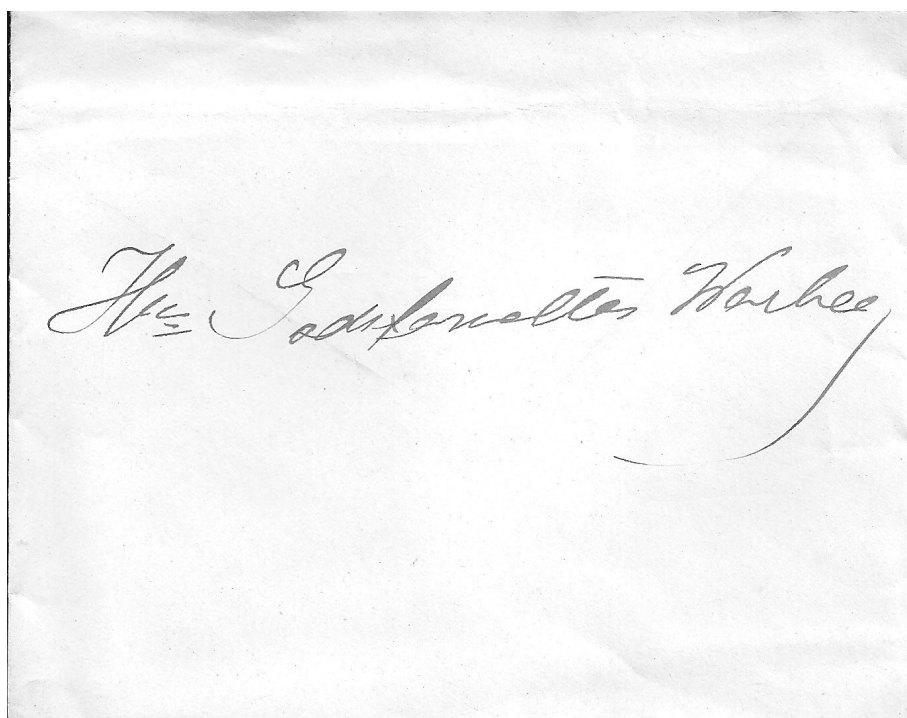 Hr Godsforvalter Warberg